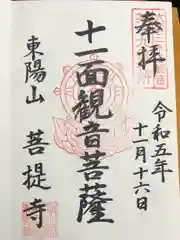 奉拝
令和五年
十一月十六日
十一面観音菩薩
東陽山
菩提寺